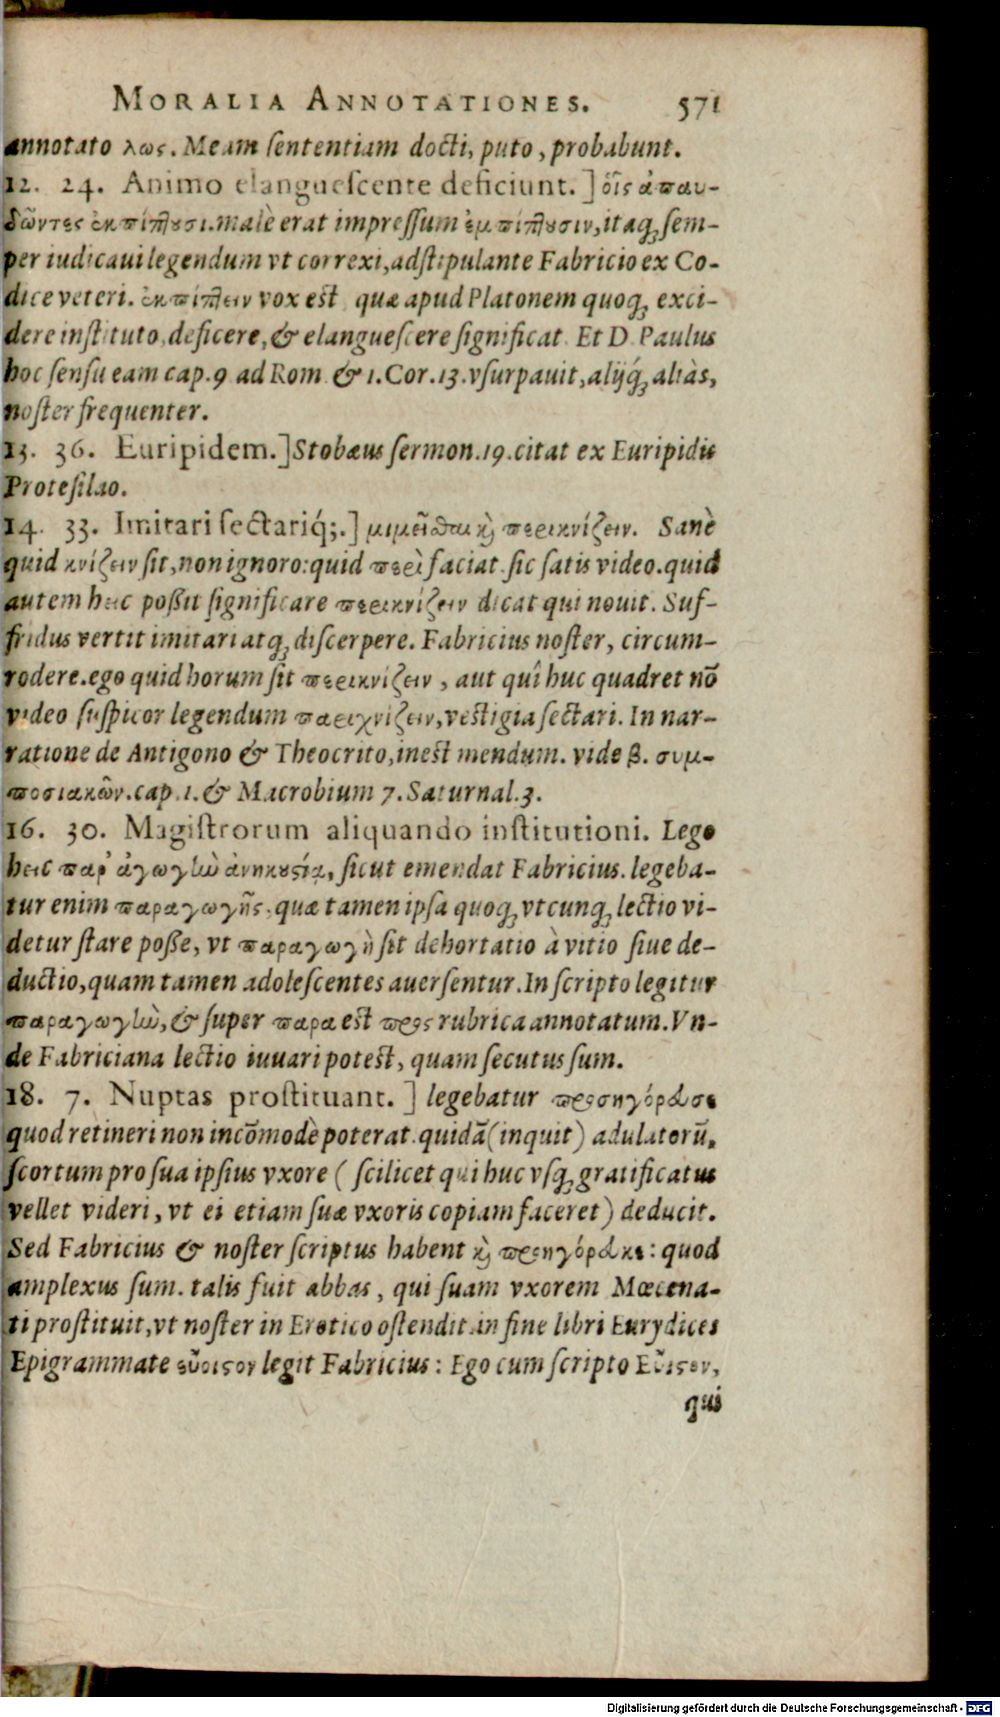 MORALIA ANNOTATIONES. 571
annotato λως. Meam sententiam docti, puto, probabunt.
12. 24. Animo elanguescente deficiunt.] οἷς ἀπαυ-
δῶντες ἐκπίπτουσι. malè erat impressum ἐμπίπτουσιν, itaq; sem-
per iudicaui legendum vt correxi, adstipulante Fabricio ex Co-
dice veteri. ἐκπίπτειν vox est quæ apud Platonem quoq; exci-
dere instituto, deficere, & elanguescere significat. Et D. Paulus
hoc sensu eam cap. 9. ad Rom. & 1. Cor. 13. vsurpauit, alijq́; aliàs,
noster frequenter.
13. 36. Euripidem.] Stobæus sermon. 19. citat ex Euripidis
Protesilao.
14. 33. Imitari sectariq́;.] μιμεῖσθαι καὶ περικνίζειν. Sanè
quid κνίζειν sit, non ignoro: quid περὶ faciat sic satis video. quid
autem heic possit significare περικνίζειν dicat qui nouit. Suf-
fridus vertit imitari atq; discerpere. Fabricius noster, circum-
rodere. ego quid horum sit περικνίζειν, aut quî huc quadret nō
video suspicor legendum παριχνίζειν, vestigia sectari. In nar-
ratione de Antigono & Theocrito, inest mendum. vide β. συμ-
ποσιακῶν. cap. 1. & Macrobium 7. Saturnal. 3.
16. 30. Magistrorum aliquando institutioni. Lego
heic παρ' ἀγωγὴν ἀνηκουστίᾳ, sicut emendat Fabricius. legeba-
tur enim παραγωγῆς. quæ tamen ipsa quoq; vtcunq; lectio vi-
detur stare posse, vt παραγωγὴ sit dehortatio à vitio siue de-
ductio, quam tamen adolescentes auersentur. In scripto legitur
παραγωγὴν, & super παρα est προς rubrica annotatum. Vn-
de Fabriciana lectio iuuari potest, quam secutus sum.
18. 7. Nuptas prostituant.] legebatur προσηγόρευσε
quod retineri non incōmodè poterat. quidā (inquit) adulatorū,
scortum pro sua ipsius vxore (scilicet qui huc vsq; gratificatus
vellet videri, vt ei etiam suæ vxoris copiam faceret) deducit.
Sed Fabricius & noster scriptus habent καὶ προηγόρευκε: quod
amplexus sum. talis fuit abbas, qui suam vxorem Mœcena-
ti prostituit, vt noster in Erotico ostendit. in fine libri Eurydices
Epigrammate εὔριστον legit Fabricius: Ego cum scripto
qui
Digitalisierung gefördert durch die Deutsche Forschungsgemeinschaft - DFG